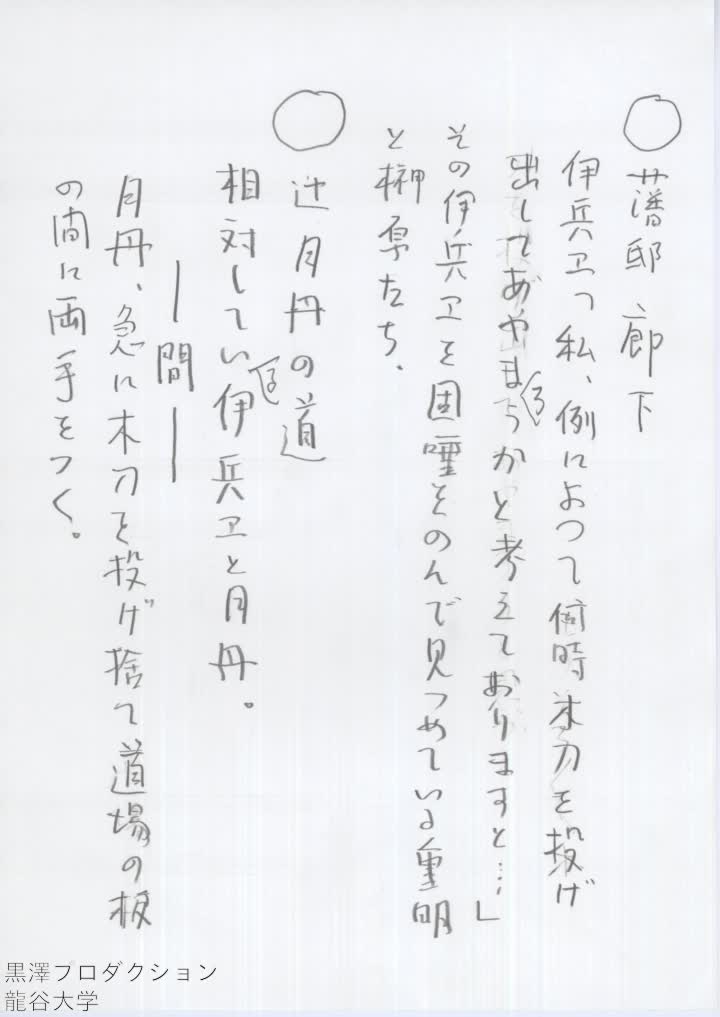 ○藩邸、廊下
伊兵ヱ「私、例によつて何時木刀を投げ
出してあやまろうかと考えておりますと…」
その伊兵ヱを固唾をのんで見つめている重明
と榊原たち、
○辻月丹の道
相対してい伊兵ヱと月丹。
る
―間―
月丹、急に木刀を投げ捨て道場の板
の間に両手をつく。
黒澤プロダクション
龍谷大学